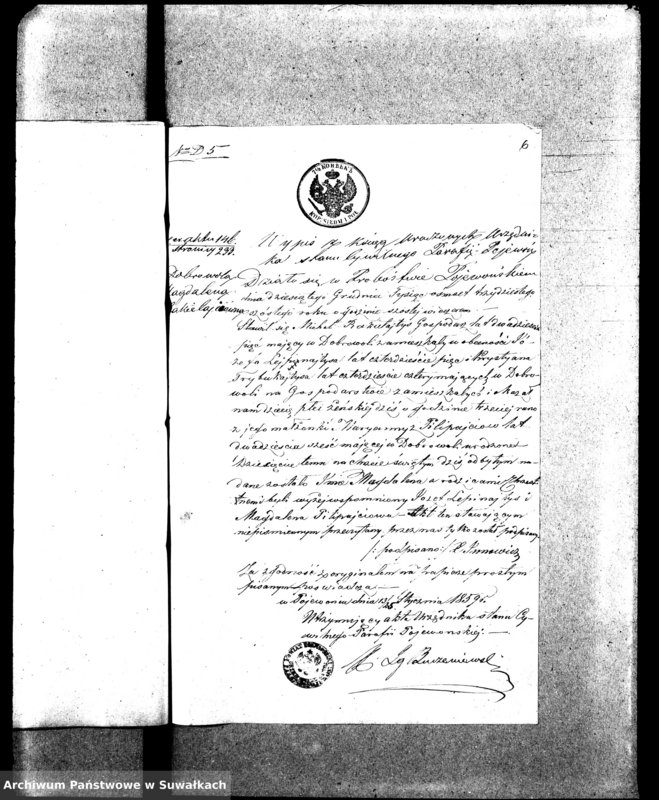 Nro D 5
6
7½ КОПѢЕКЪ
KOP. SIEDM I PÓŁ
Ner aktu 146.
Strony 291.
Dobrowola
Magdalena
Bakiełajciówna
Wypis z ksiąg Urodzonych Urzędni-
ka stanu cywilnego Parafii Pojewoń
Działo się w Probostwie Pojewońskiem
dnia dziesiątego Grudnia Tysiąc osmset trzydziestego
szóstego roku o godzinie szóstej wieczor.
Stawił się Michał Gospodarz lat dwadzieścia
pięć mający w Dobrowoli zamieszkały w obecności Jó-
zefa Lepinajtysa lat czterdzieście pięć i Krystyana
lat czterdzieście cztery mających w Dobro-
woli na Gospodarstwie zamieszkałych i okazał
nam dziecię płci żeńskiej dziś o godzinie trzeciej rano
z jego małżonki Maryanny z Filipajciow lat
dwadzieścia sześć mającej w Dobrowoli urodzone
Dziecięciu temu na chrzcie świętym dziś odbytym na-
dane zostało Imie Magdalena a rodzicami Chrzest-
nemi byli wyżej wspomniony Józef Lepinajtys i
Magdalena Filipajciowa – Akt ten stawającym
niepismiennym przeczytany przez nas tylko został podpisany
/: podpisano:/
Za zgodność z oryginałem na papierze prostym
pisanym poswiadcza —
w Pojewoniu dnia 13/25 Stycznia 1859 r.
Utrzymujący akta Urzędnika stanu Cy-
wilnego Parafii Pojewońskiej. —
Archiwum Państwowe w Suwałkach